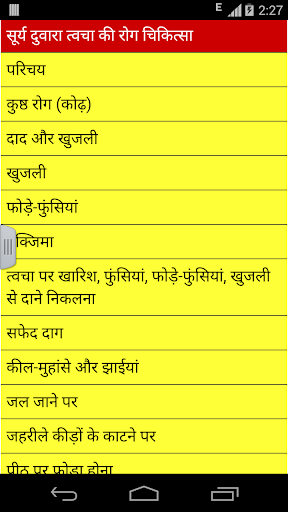 E 2:27
सूर्य दुवारा त्वचा की रोग चिकित्सा
परिचय
कुष्ठ रोग (कोढ़)
दाद और खुजली
खुजली
फोड़े-फुंसियां
त्वचा पर खारिश, फुंसियां, फोड़े-फुंसियां, खुजली
से दाने निकलना
सफेद दाग
कील-मुहांसे और झाईयां
जल जाने पर
जहरीले कीड़ों के काटने पर
पीठ पर फोड़ा होना